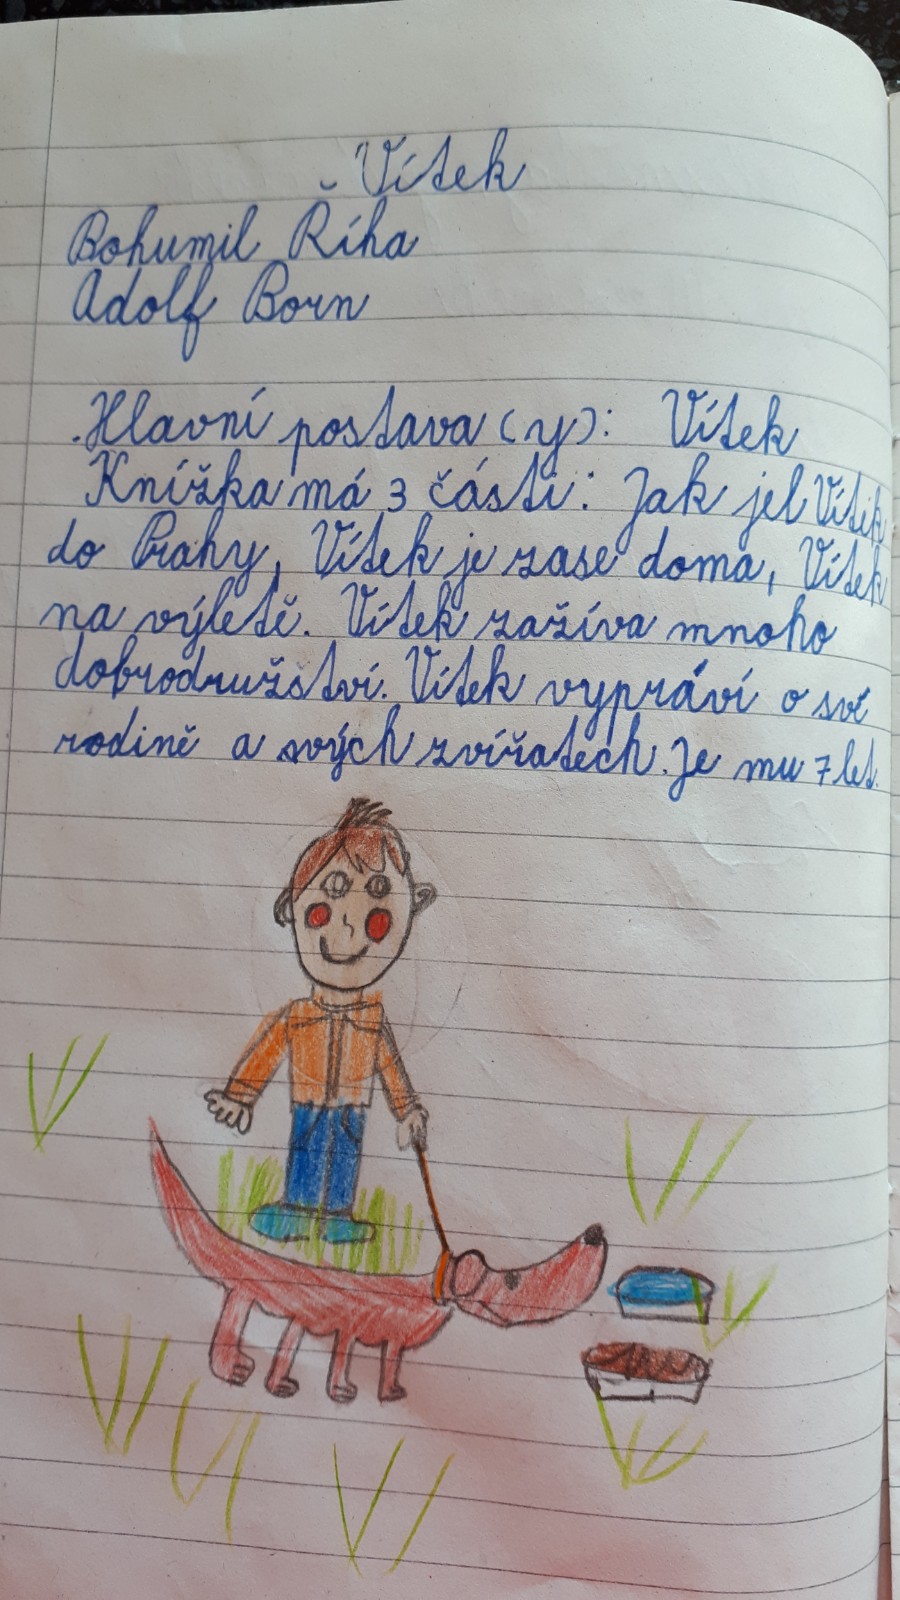 Vítek
Bohumil Říha
Adolf Born
Hlavní postava(y): Vítek
Knížka má 3 části: Jak jel Vítek
do Prahy, Vítek je zase doma, Vítek
na výletě. Vítek zažíva mnoho
dobrodružství. Vítek vypráví o své
rodině a svých zvířatech. Je mu 7 let.